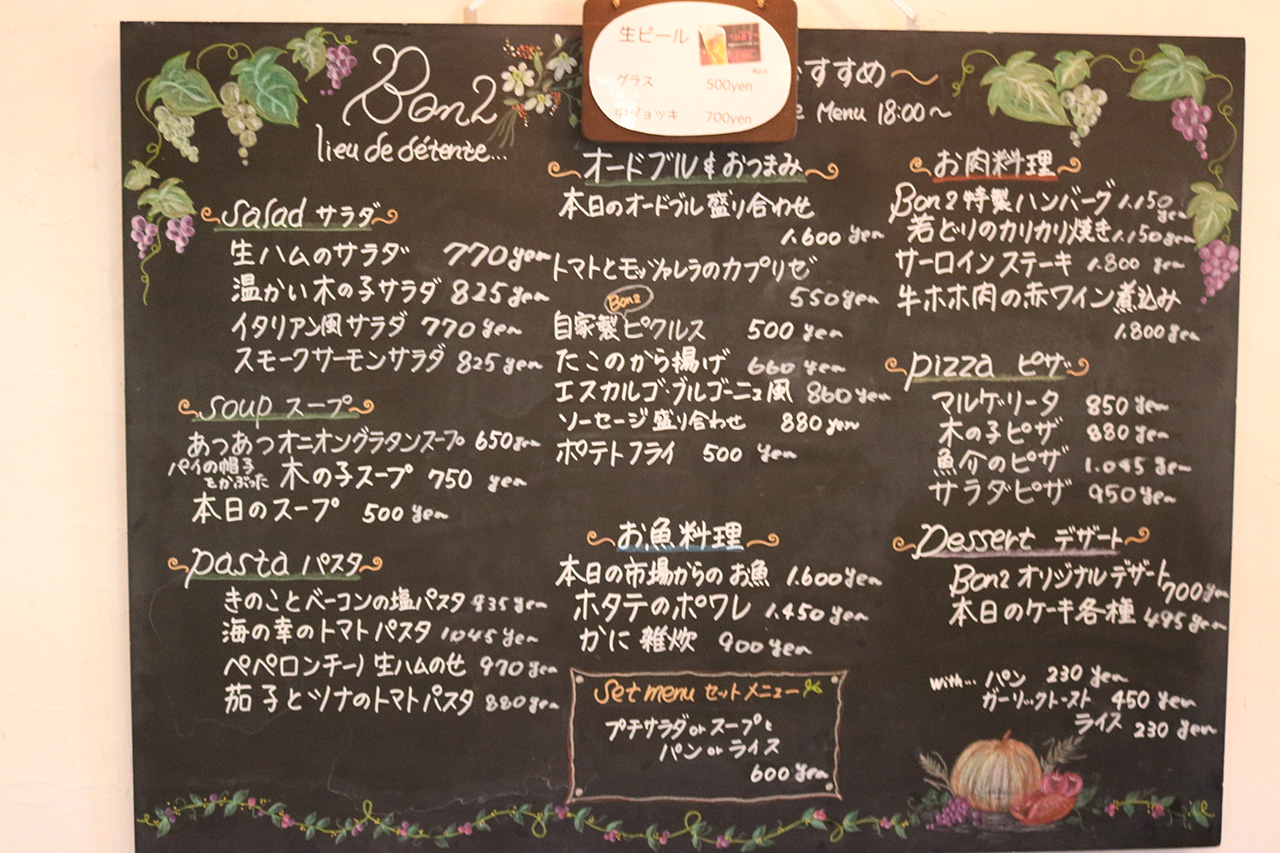 Bon2
lieu de détente...
生ビール
グラス 500yen
中ジョッキ 700yen
すすめ～
Menu 18:00～
Salad サラダ
生ハムのサラダ 770yen
温かい木の子サラダ 825yen
イタリアン風サラダ 770yen
スモークサーモンサラダ 825yen
Soup スープ
あつあつオニオングラタンスープ 650yen
パイの帽子をかぶった 木の子スープ 750 yen
本日のスープ 500yen
pasta パスタ
きのことベーコンの塩パスタ 935yen
海の幸のトマトパスタ 1.045yen
ペペロンチーノ生ハムのせ 970yen
茄子とツナのトマトパスタ 880yen
オードブル&おつまみ
本日のオードブル盛り合わせ
1.600 yen
トマトとモッツァレラのカプリゼ
550yen
Bon2
自家製ピクルス 500 yen
たこのから揚げ 660 yen
エスカルゴ・ブルゴーニュ風 860yen
ソーセージ盛り合わせ 880 yen
ポテトフライ 500 yen
お魚料理
本日の市場からのお魚 1.600yen
ホタテのポワレ 1.450yen
かに雑炊 900yen
Set menu セットメニュー
プチサラダorスープと
パンorライス
600 yen
お肉料理
Bon2特製ハンバーグ 1.150yen
若とりのカリカリ焼き 1.150yen
サーロインステーキ 1.800 yen
牛ホホ肉の赤ワイン煮込み
1.800yen
pizza ピザ
マルゲリータ 850yen
木の子ピザ 880yen
魚介のピザ 1.045yen
サラダピザ 950yen
Dessert デザート
Bon2オリジナルデザート 700yen
本日のケーキ各種 495yen
with... パン 230 yen
ガーリックトースト 450 yen
ライス 230 yen